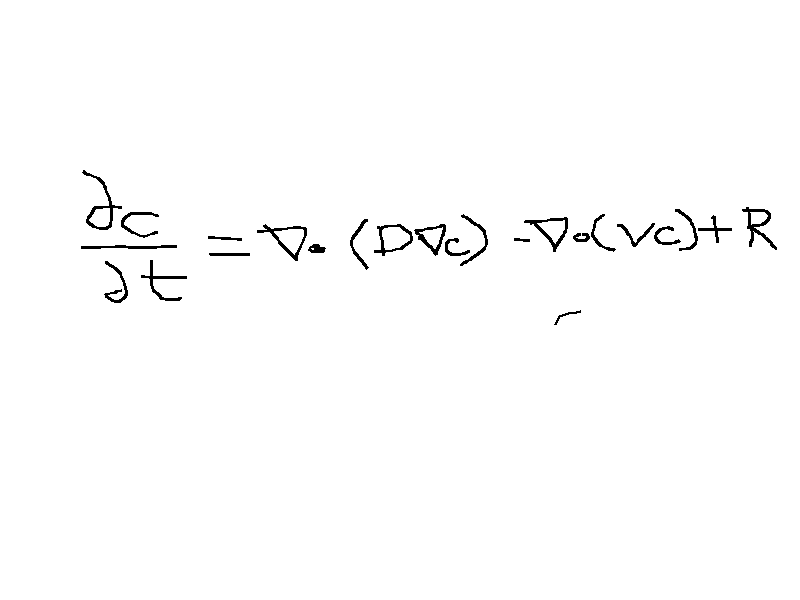 ∂c/∂t = ∇·(D∇c) - ∇·(vc) + R